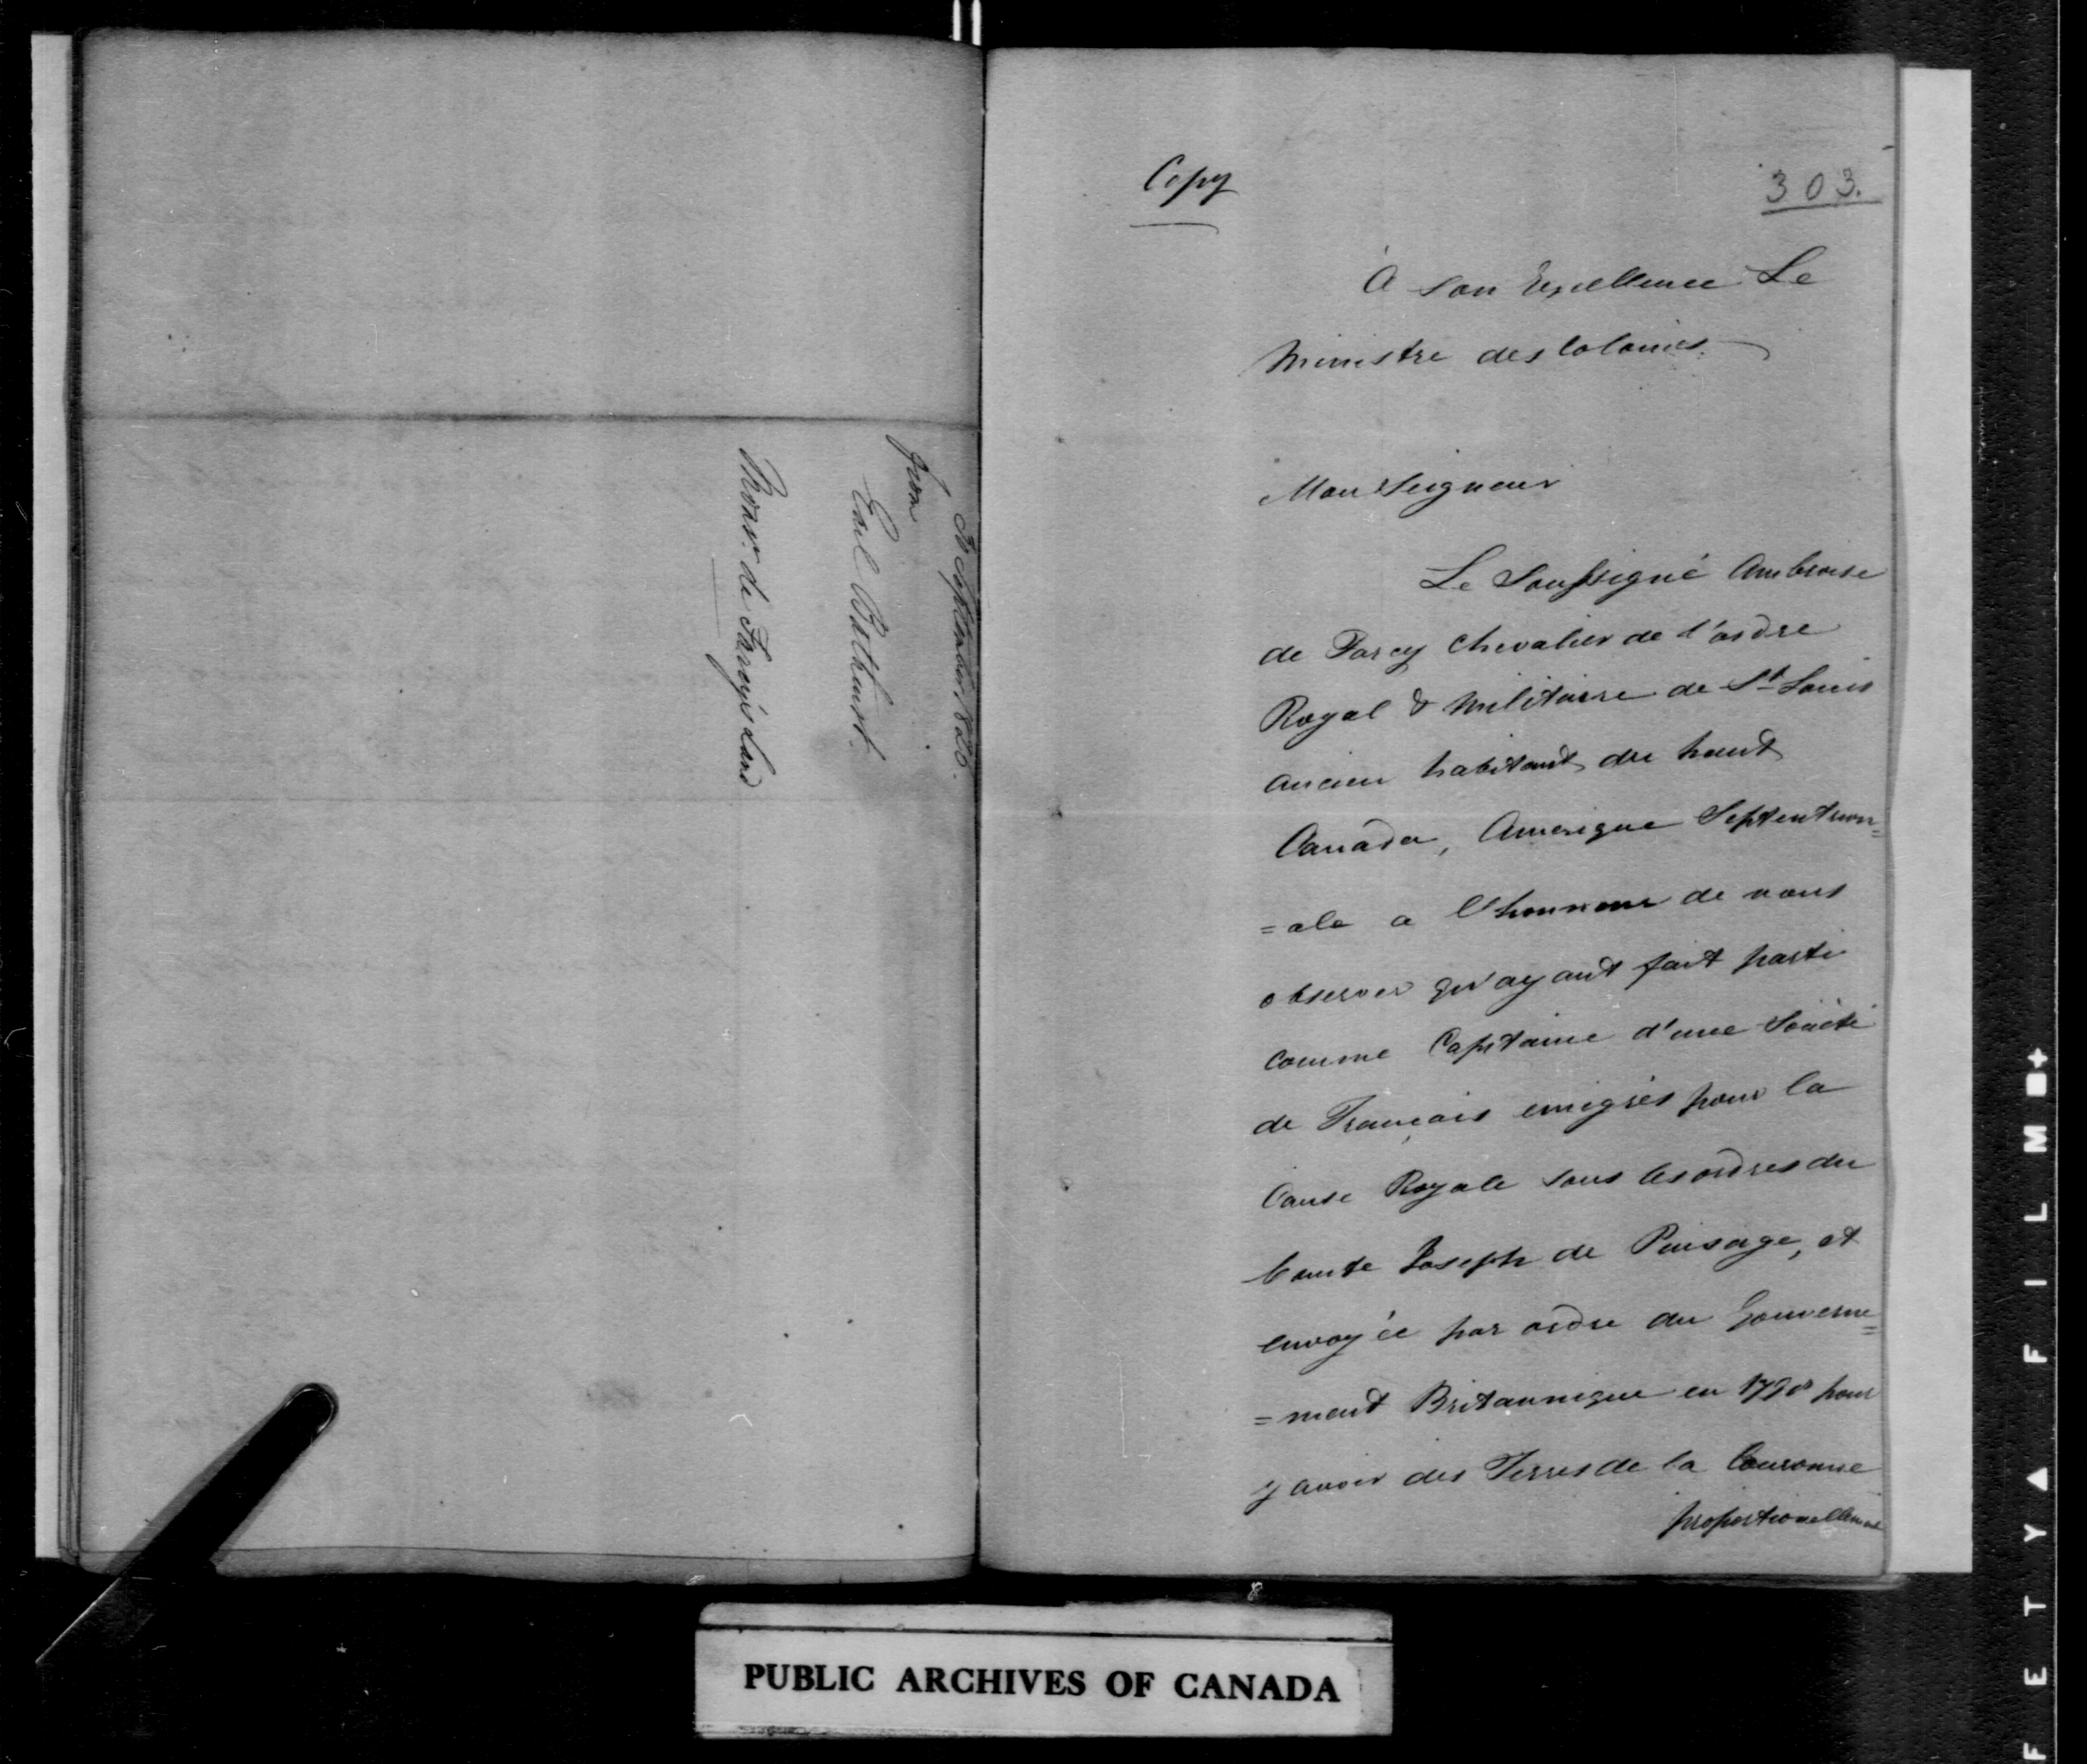 September 1826.
from
Earl Bathurst.
Monsr. de Farcy's Land
Copy
303.
A Son Excellence Le
Ministre des Colonies.
Mon Seigneur
Le Soussigné Ambroise
de Farcy Chevalier de l'ordre
Royal & Militaire de St Louis
ancien habitant du haut
Canada, Amerique Septentrion=
=ale a l'honneur de vous
observer qu'ayant fait parti
comme Capitaine d'une Société
de Français emigrés pour la
Cause Royale sous les ordres du
Comte Joseph de Puisage, et
envoyée par ordre du Gouverne=
=ment Britannique en 1798 pour
y avoir des Terres de la Couronne
proportionellement
PUBLIC ARCHIVES OF CANADA
F E T Y ▲ F I L M